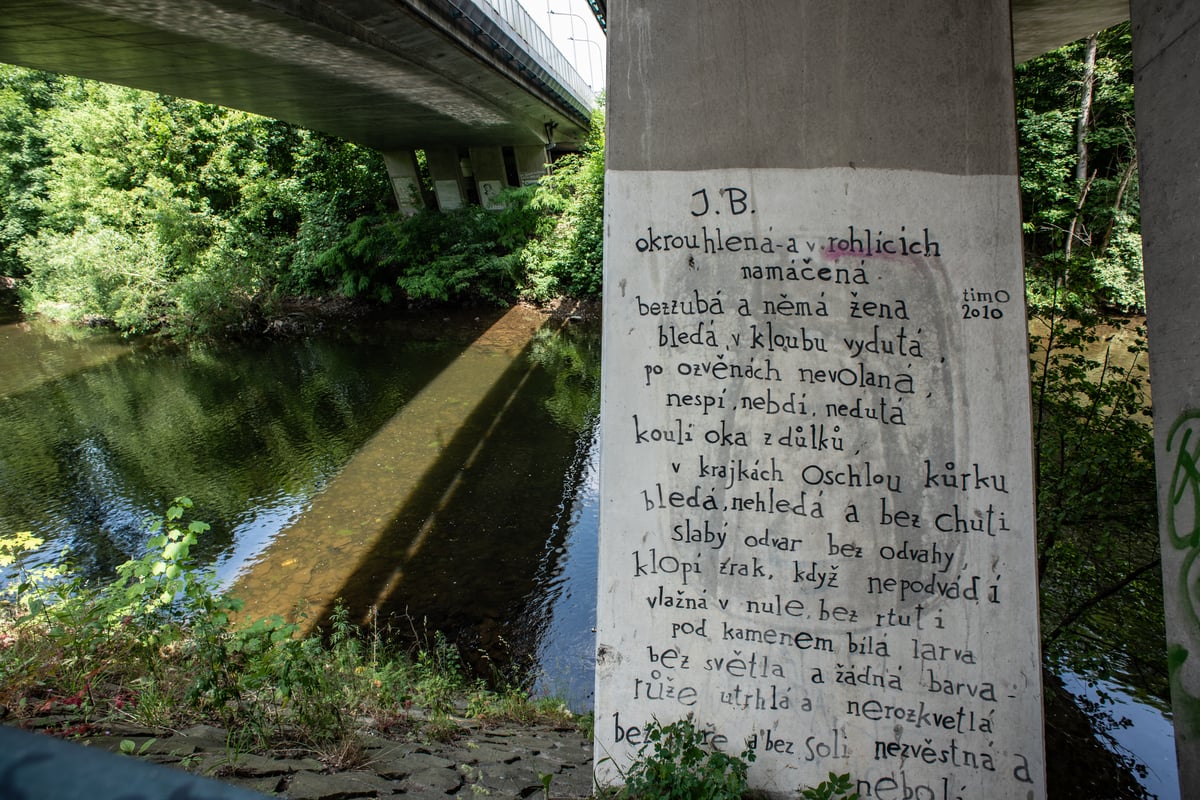 J.B.
okrouhlená-a v rohlících
namáčená
timO
2010
bezzubá a němá žena
bledá, v kloubu vydutá,
po ozvěnách nevolaná,
nespí, nebdí, nedutá
koulí oka z důlků,
v krajkách oschlou kůrku
bledá, nehledá a bez chuti
slabý odvar bez odvahy,
klopí zrak, když nepodvádí
vlažná v nule, bez rtuti
pod kamenem bílá larva
bez světla a žádná barva -
růže utrhlá a nerozkvetlá
a bez soli nezvěstná a
nebolí